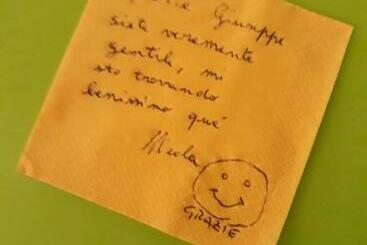 Giuseppe
siete veramente
gentile, mi
sto trovando
benissimo quì
GRAZIE